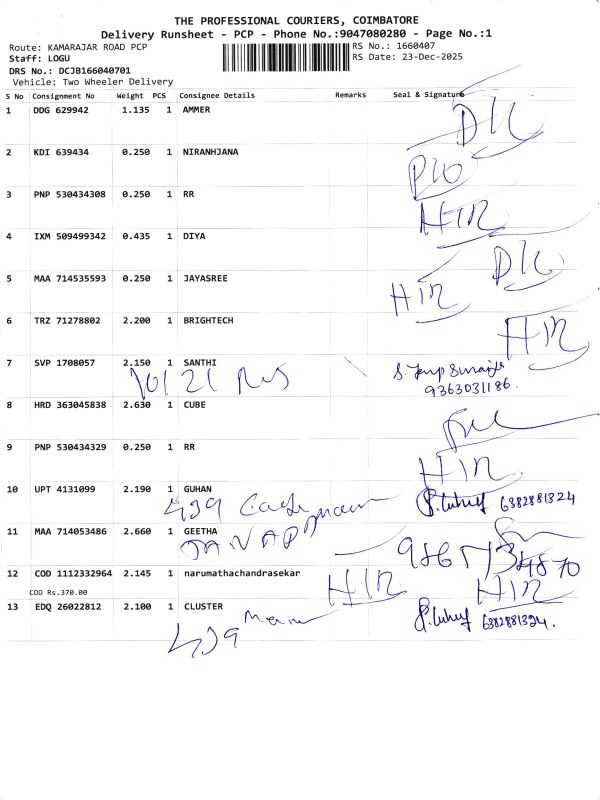 THE PROFESSIONAL COURIERS, COIMBATORE
Delivery Runsheet - PCP - Phone No.:9047080280 - Page No.:1
Route: KAMARAJAR ROAD PCP
RS No.: 1660407
Staff: LOGU
RS Date: 23-Dec-2025
DRS No.: DCJB166040701
Vehicle: Two Wheeler Delivery
S No Consignment No Weight PCS Consignee Details Remarks Seal & Signature
1 DDG 629942 1.135 1 AMMER
2 KDI 639434 0.250 1 NIRANHJANA
3 PNP 530434308 0.250 1 RR
4 IXM 509499342 0.435 1 DIYA
5 MAA 714535593 0.250 1 JAYASREE
6 TRZ 71278802 2.200 1 BRIGHTECH
7 SVP 1708057 2.150 1 SANTHI
9363031186.
8 HRD 363045838 2.630 1 CUBE
9 PNP 530434329 0.250 1 RR
10 UPT 4131099 2.190 1 GUHAN
6382881324
11 MAA 714053486 2.660 1 GEETHA
12 COD 1112332964 2.145 1 narumathachandrasekar
COD Rs.370.00
13 EDQ 26022812 2.100 1 CLUSTER
6382881324.